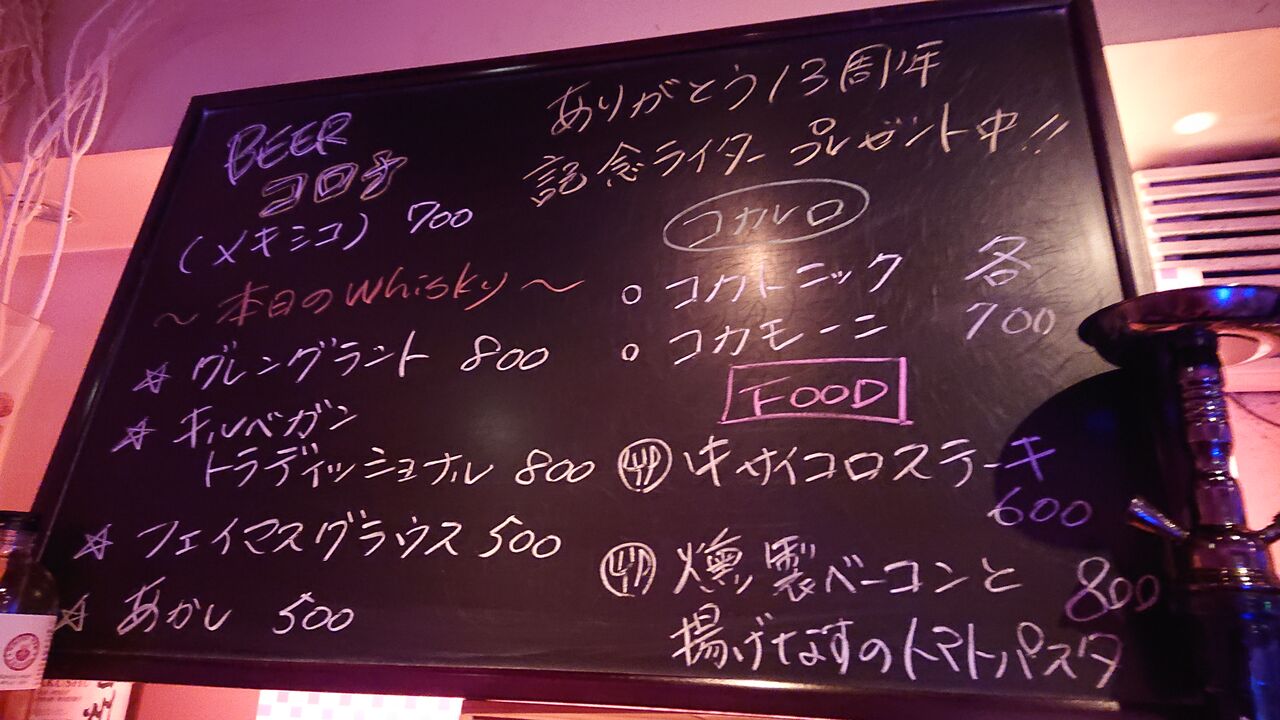 ありがとう13周年
記念ライタープレゼント中!!
BEER
コロナ
(メキシコ) 700
〜本日のWhisky〜
☆ グレングラント 800
☆ キルベガン
トラディッショナル 800
☆ フェイマスグラウス 500
☆ あかし 500
コカレロ
○ コカトニック 各
○ コカモーニ 700
FOOD
牛サイコロステーキ
600
燻製ベーコンと 800
揚げなすのトマトパスタ